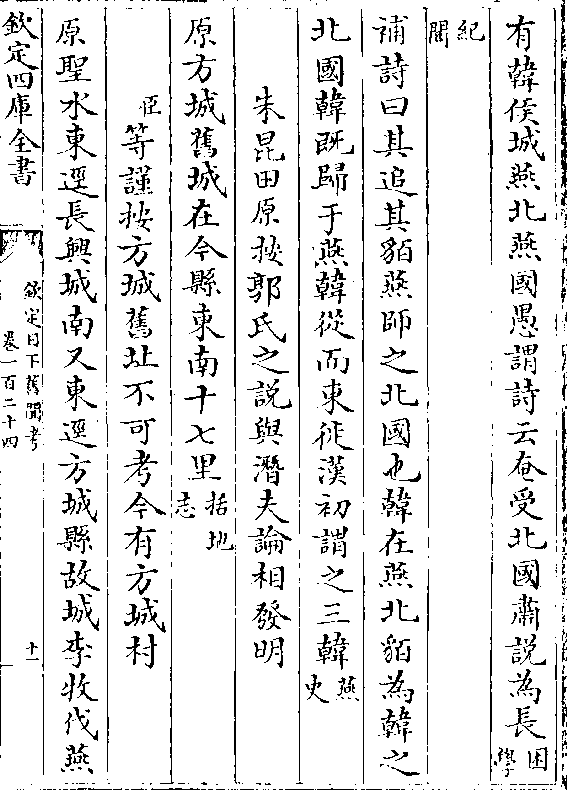 有韓侯城燕北燕國愚謂詩云奄受北國肅説為長困學
紀聞
補詩曰其追其貊燕師之北國也韓在燕北貊為韓之
北國韓既歸于燕韓從而東徙漢初謂之三韓燕史
朱昆田原按郭氏之説與潛夫論相發明
原方城舊城在今縣東南十七里括地志
臣等謹按方城舊址不可考今有方城村
原聖水東逕長興城南又東逕方城縣故城李牧伐燕
欽定四庫全書
欽定日下舊聞考
卷一百二十四
十一